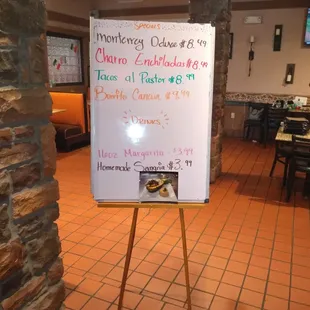 Specials
Monterrey Deluxe $8.49
Charro Enchiladas $8.99
Tacos al Pastor $8.49
Burrito Cancun $8.49
Drinks
Margarita $3.99
Homemade Sangria $3.99